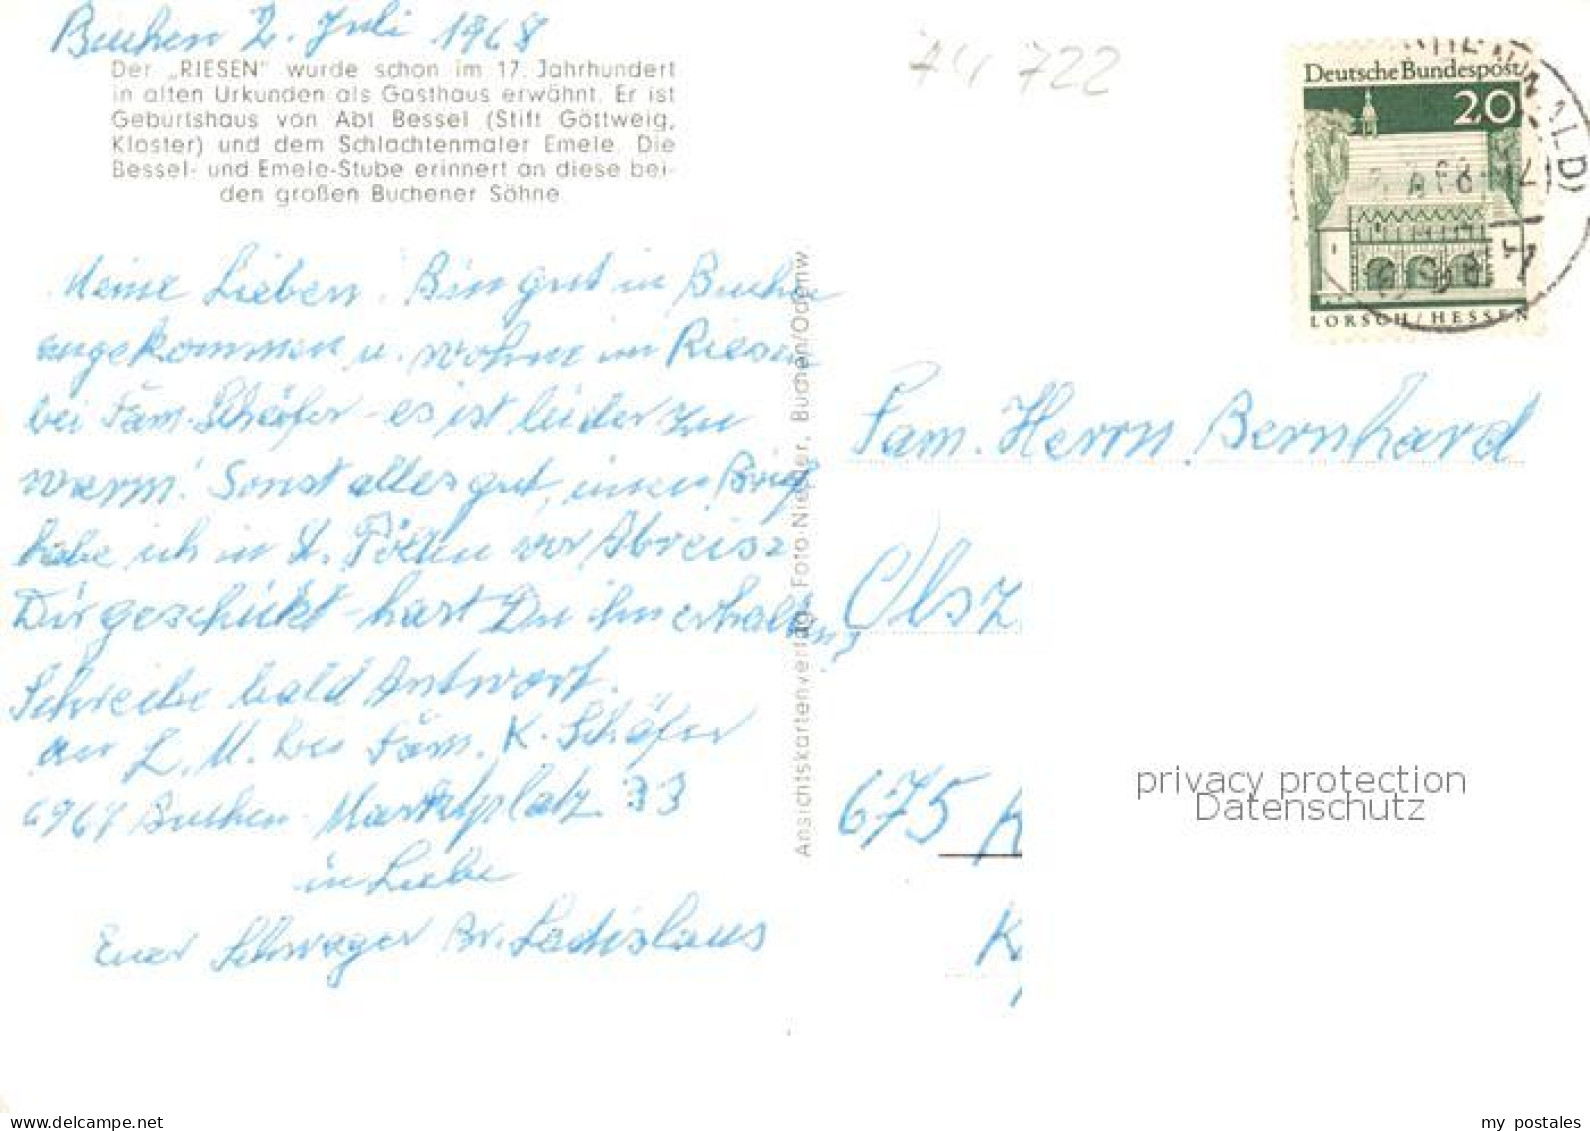 Buchen 2. Juli 1968
Der „RIESEN" wurde schon im 17. Jahrhundert
in alten Urkunden als Gasthaus erwähnt. Er ist
Geburtshaus von Abt Bessel (Stift Göttweig,
Kloster) und dem Schlachtenmaler Emele. Die
Bessel- und Emele-Stube erinnert an diese bei-
den großen Buchener Söhne.
Meine Lieben. Bin gut in Buchen
angekommen u. wohne im Riesen
bei Fam. Schäfer - es ist leider zu
warm! Sonst alles gut, Brief
habe ich in St. Pölten vor Abreise
Dir geschickt - hast Du ihn erhalten?
Schreibe bald Antwort.
an L. M. bei Fam. K. Schäfer
6967 Buchen Marktplatz 33
in Liebe
Euer Schwager Br. Ladislaus
Ansichtskartenverlag: Foto-Nieser, Buchen/Odenw
74 722
Deutsche Bundespost
20
LORSCH/HESSEN
ALD)
Fam. Herrn Bernhard
Olsz
675 K
K
privacy protection
Datenschutz
my postales